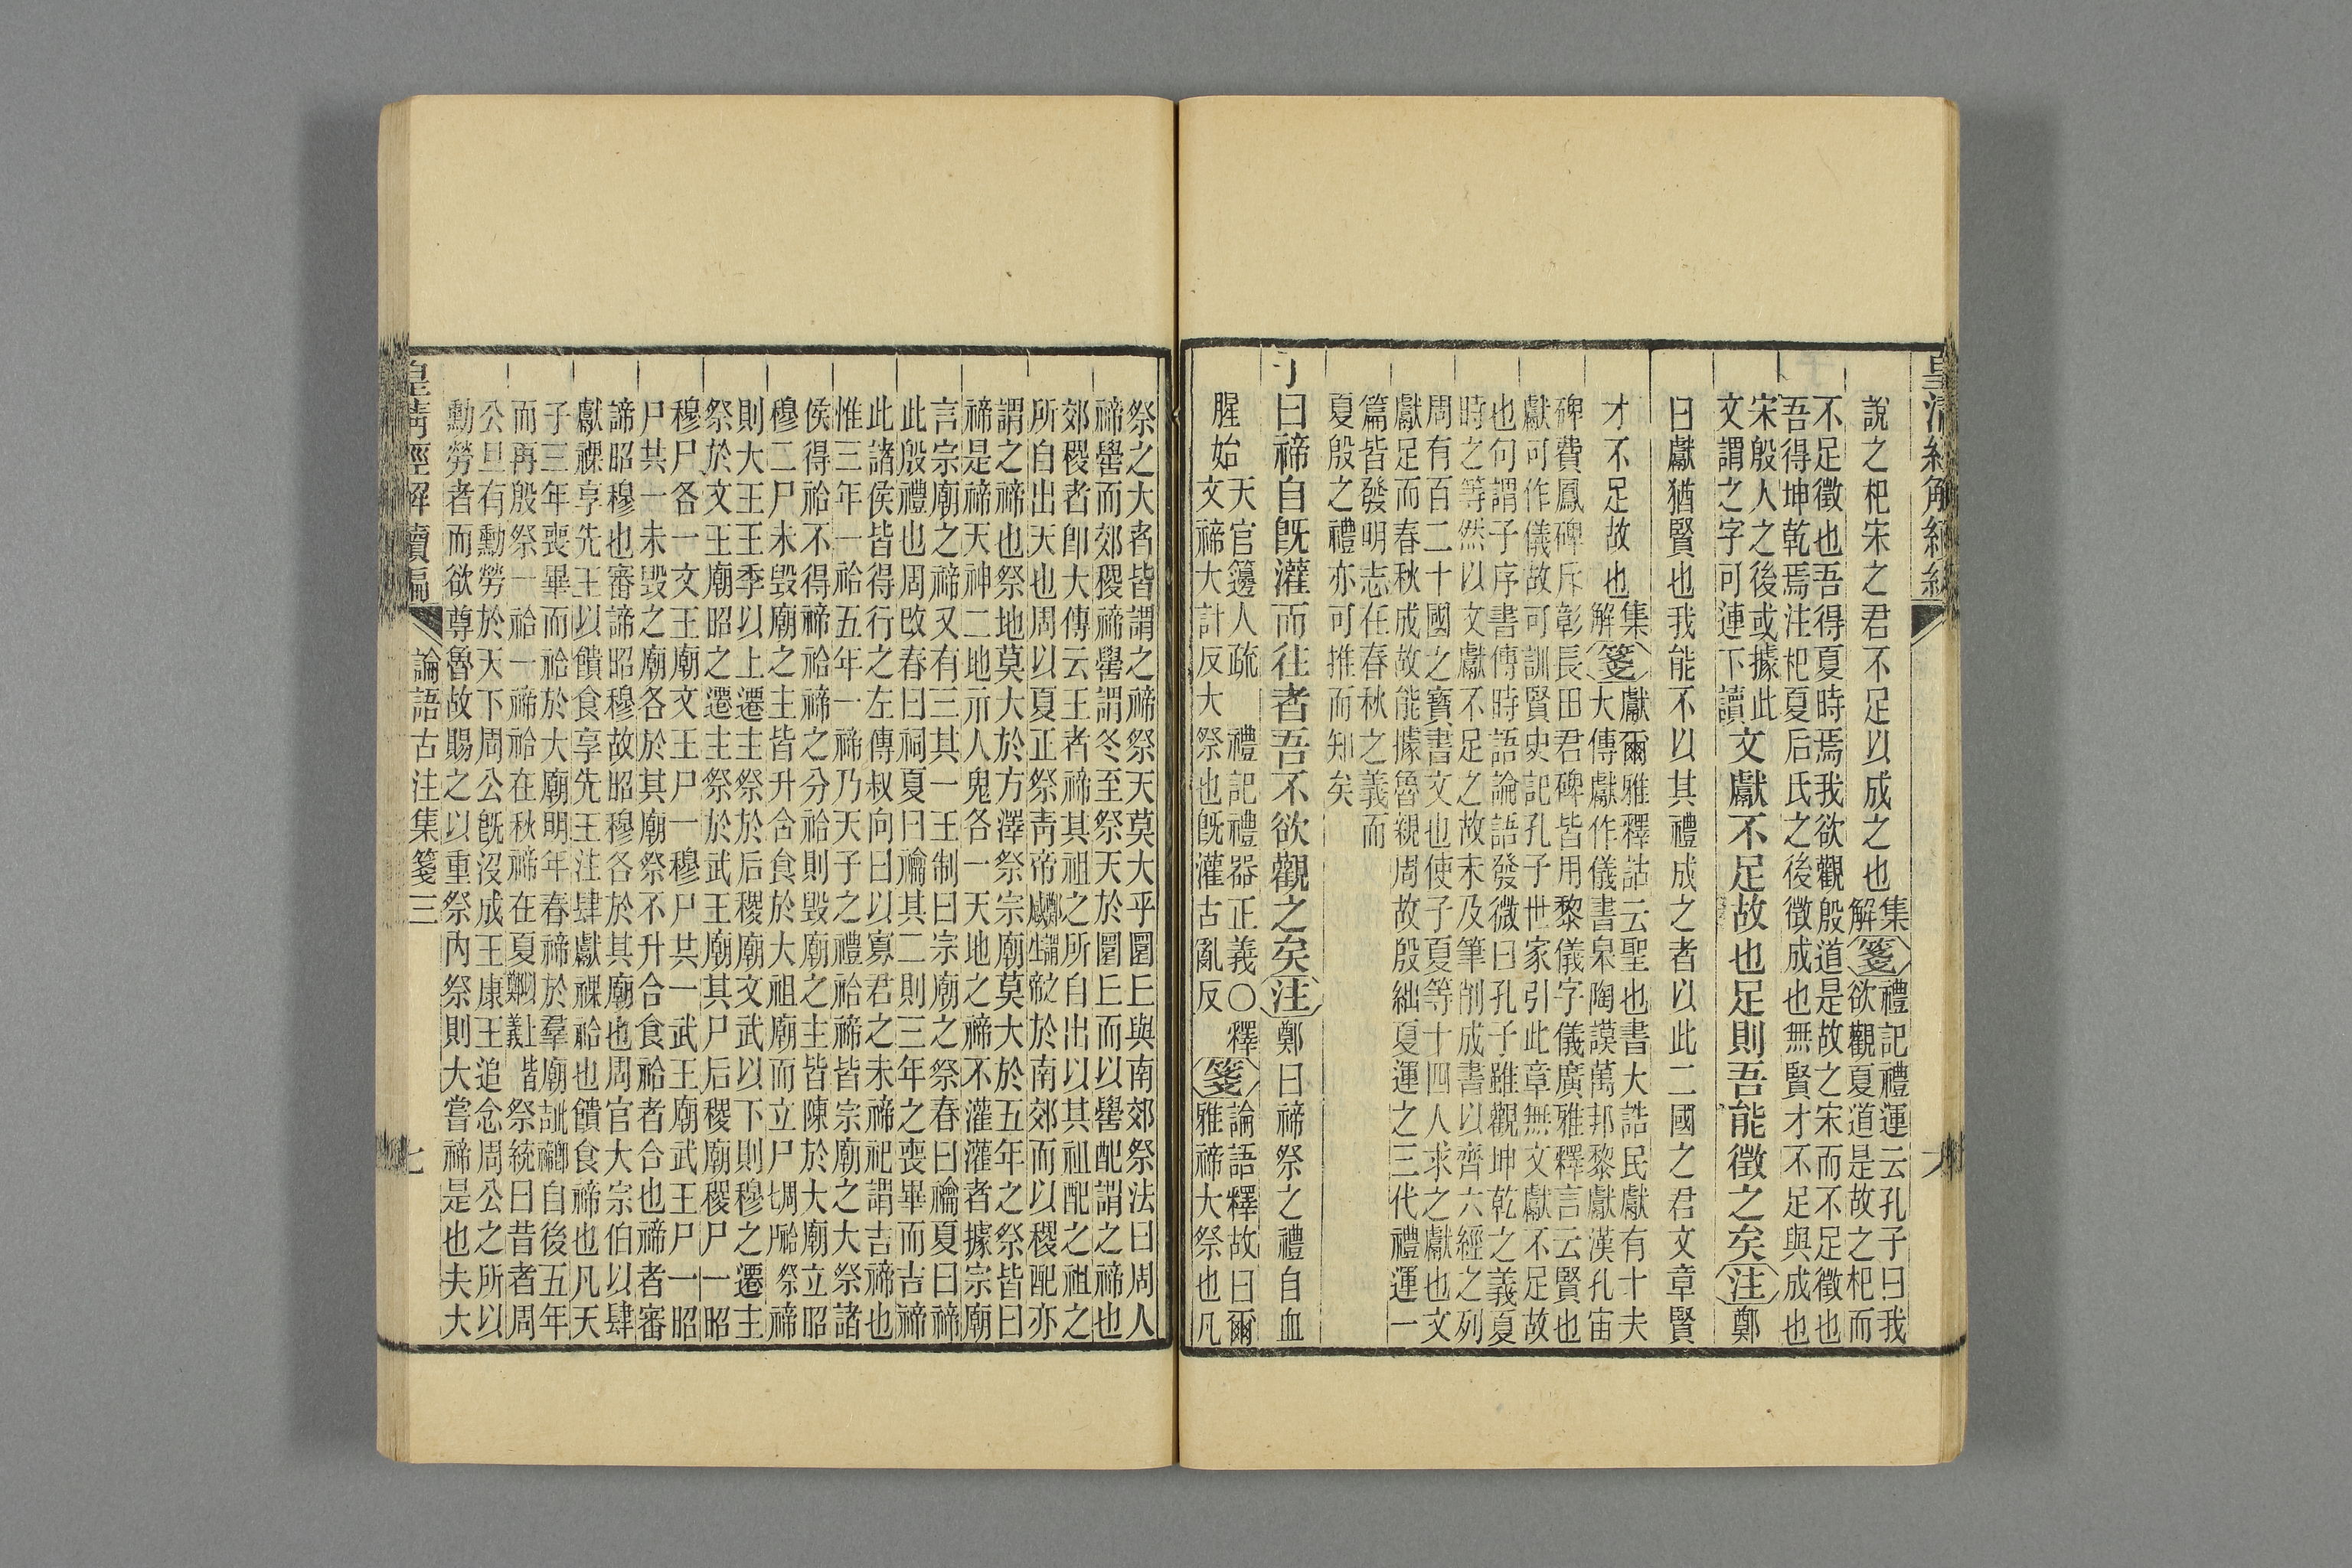 皇清經解續編
說之杞宋之君不足以成之也
集解
箋
禮記禮運云孔子曰我
欲觀夏道是故之杞而
不足徵也吾得夏時焉我欲觀殷道是故之宋而不足徵也
吾得坤乾焉注杞夏后氏之後徵成也無賢才不足與成也
宋殷人之後或據此
文謂之字可連下讀
文獻不足故也足則吾能徵之矣
注
鄭
曰獻猶賢也我能不以其禮成之者以此二國之君文章賢
才不足故也
集解
箋
獻爾雅釋詁云聖也書大誥民獻有十夫
大傳獻作儀書皐陶謨萬邦黎獻漢孔宙
碑費鳳碑斥彰長田君碑皆用黎儀字儀廣雅釋言云賢也
獻可作儀故可訓賢史記孔子世家引此章無文獻不足故
也句謂子序書傳時語論語發微曰孔子雖觀坤乾之義夏
時之等然以文獻不足之故未及筆削成書以齊六經之列
周有百二十國之寶書文也使子夏等十四人求之獻也文
獻足而春秋成故能據魯親周故殷絀夏運之三代禮運一
篇皆發明志在春秋之義而
夏殷之禮亦可推而知矣
子曰禘自旣灌而往者吾不欲觀之矣
注
鄭曰禘祭之禮自血
腥始
天官籩人疏 禮記禮器正義〇釋
文禘大計反大祭也旣灌古亂反
箋
論語釋故曰爾
雅禘大祭也凡
祭之大者皆謂之禘祭天莫大乎圜丘與南郊祭法曰周人
禘嚳而郊稷禘嚳謂冬至祭天於圜丘而以嚳配謂之禘也
郊稷者卽大傳云王者禘其祖之所自出以其祖配之祖之
所自出天也周以夏正祭靑帝鄭謂感生帝之於南郊而以稷配亦
謂之禘也祭地莫大於方澤祭宗廟莫大於五年之祭皆曰
禘是禘天神二地示人鬼各一天地之禘不灌灌者據宗廟
言宗廟之禘又有三其一王制曰宗廟之祭春曰禴夏曰禘
此殷禮也周改春曰祠夏曰禴其二則三年之喪畢而吉禘
此諸侯皆得行之左傳叔向曰以寡君之未禘祀謂吉禘也
惟三年一祫五年一禘乃天子之禮祫禘皆宗廟之大祭諸
侯得祫不得禘祫禘之分祫則毀廟之主皆陳於大廟立昭
穆二尸未毀廟之主皆升合食於大祖廟而立尸祭禘
則大王王季以上遷主祭於后稷廟文武以下則穆之遷主
祭於文王廟昭之遷主祭於武王廟其尸后稷廟稷尸一昭
穆尸各一文王廟文王尸一穆尸共一武王廟武王尸一昭
尸共一未毀之廟各於其廟祭不升合食祫者合也禘者審
諦昭穆也審諦昭穆故昭穆各於其廟也周官大宗伯以肆
獻祼享先王以饋食享先王注肆獻祼祫也饋食禘也凡天
子三年喪畢而祫於大廟明年春禘於羣廟自後五年
而再殷祭一祫一禘祫在秋禘在夏皆祭統曰昔者周
公旦有勳勞於天下周公旣沒成王康王追念周公之所以
勳勞者而欲尊魯故賜之以重祭內祭則大嘗禘是也夫大
皇清經解續編
論語古注集箋三
七